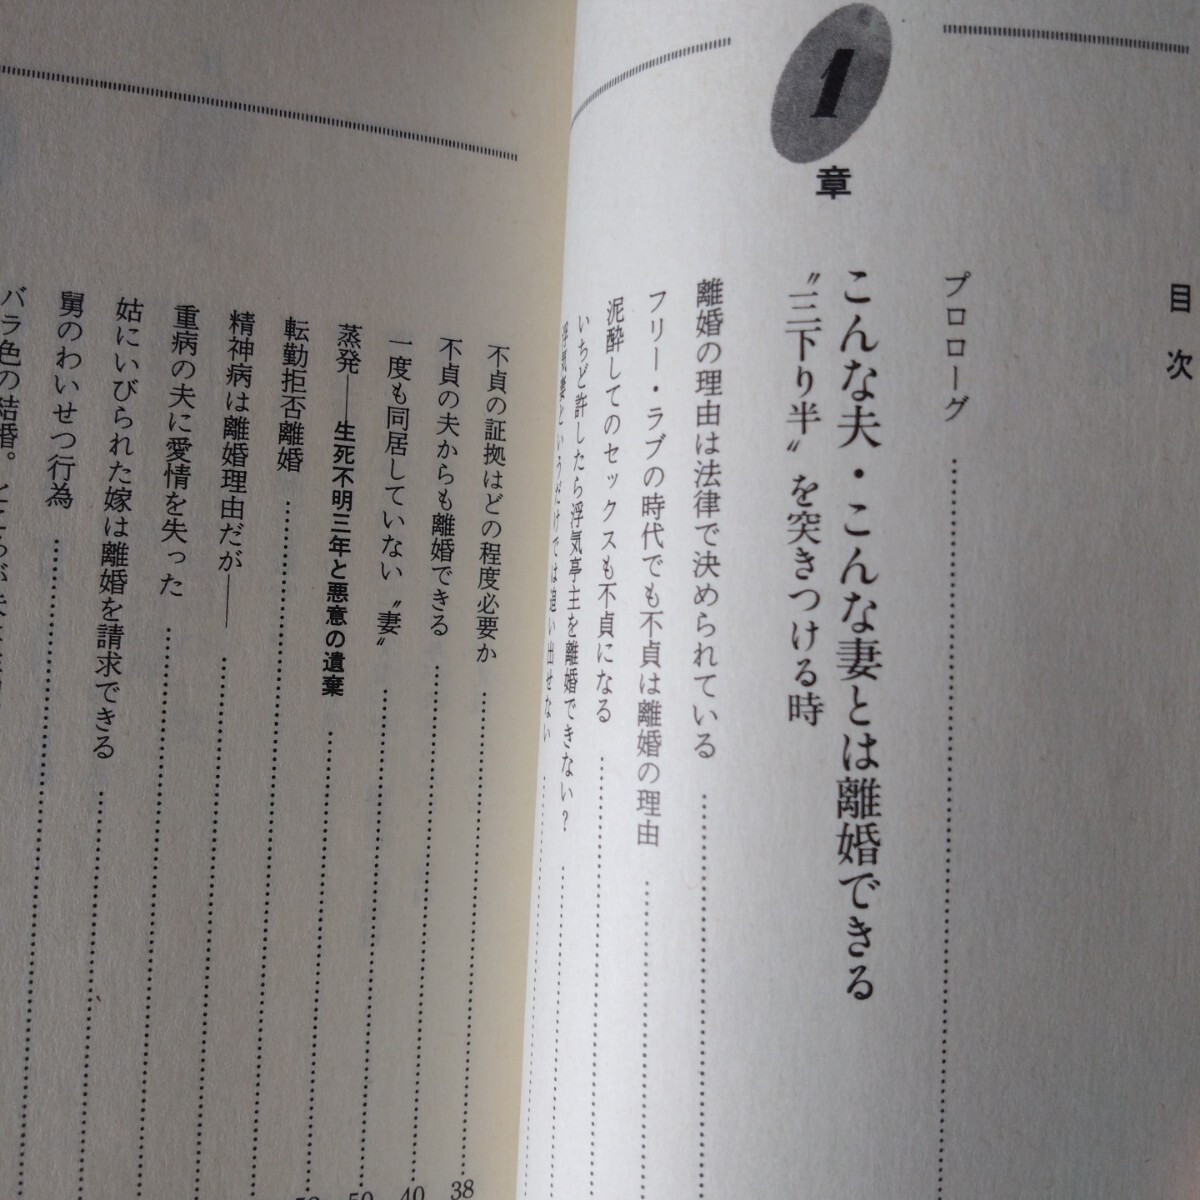 目次
プロローグ
1
章
こんな夫・こんな妻とは離婚できる
〝三下り半〟を突きつける時
離婚の理由は法律で決められている
フリー・ラブの時代でも不貞は離婚の理由
泥酔してのセックスも不貞になる
いちど許したら浮気亭主を離婚できない?
浮気妻というだけでは追い出せない
不貞の証拠はどの程度必要か 38
不貞の夫からも離婚できる 40
一度も同居していない〝妻〟 50
蒸発――生死不明三年と悪意の遺棄
転勤拒否離婚
精神病は離婚理由だが――
重病の夫に愛情を失った
姑にいびられた嫁は離婚を請求できる
舅のわいせつ行為
バラ色の結婚。ところが夫は